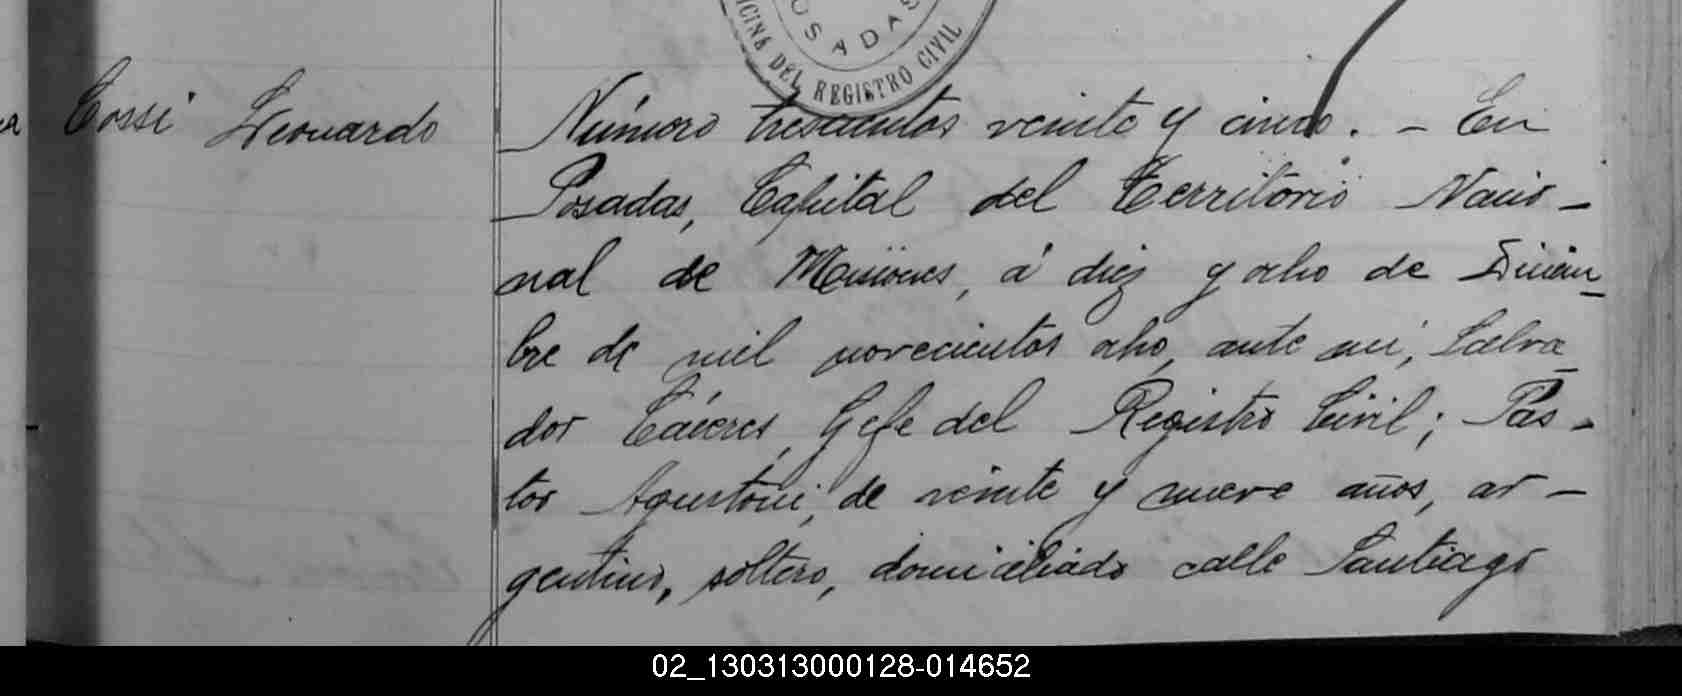 POSADAS
OFICINA DEL REGISTRO CIVIL
Cossi Leonardo
Número trescientos veinte y cinco. - En
Posadas, Capital del Territorio Nacio-
nal de Misiones, á diez y ocho de Diciem-
bre de mil novecientos ocho, ante mi, Salva-
dor Cáceres, Gefe del Registro Civil; Pas-
tor Agustoni, de veinte y nueve años, ar-
gentino, soltero, domiciliado calle Santiago
02_130313000128-014652